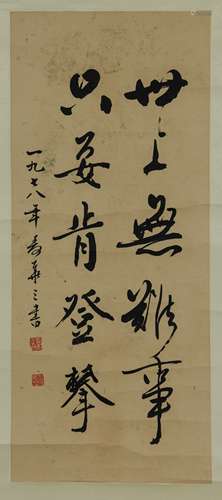 世上無難事
只要肯登攀
一九七八年春華之書